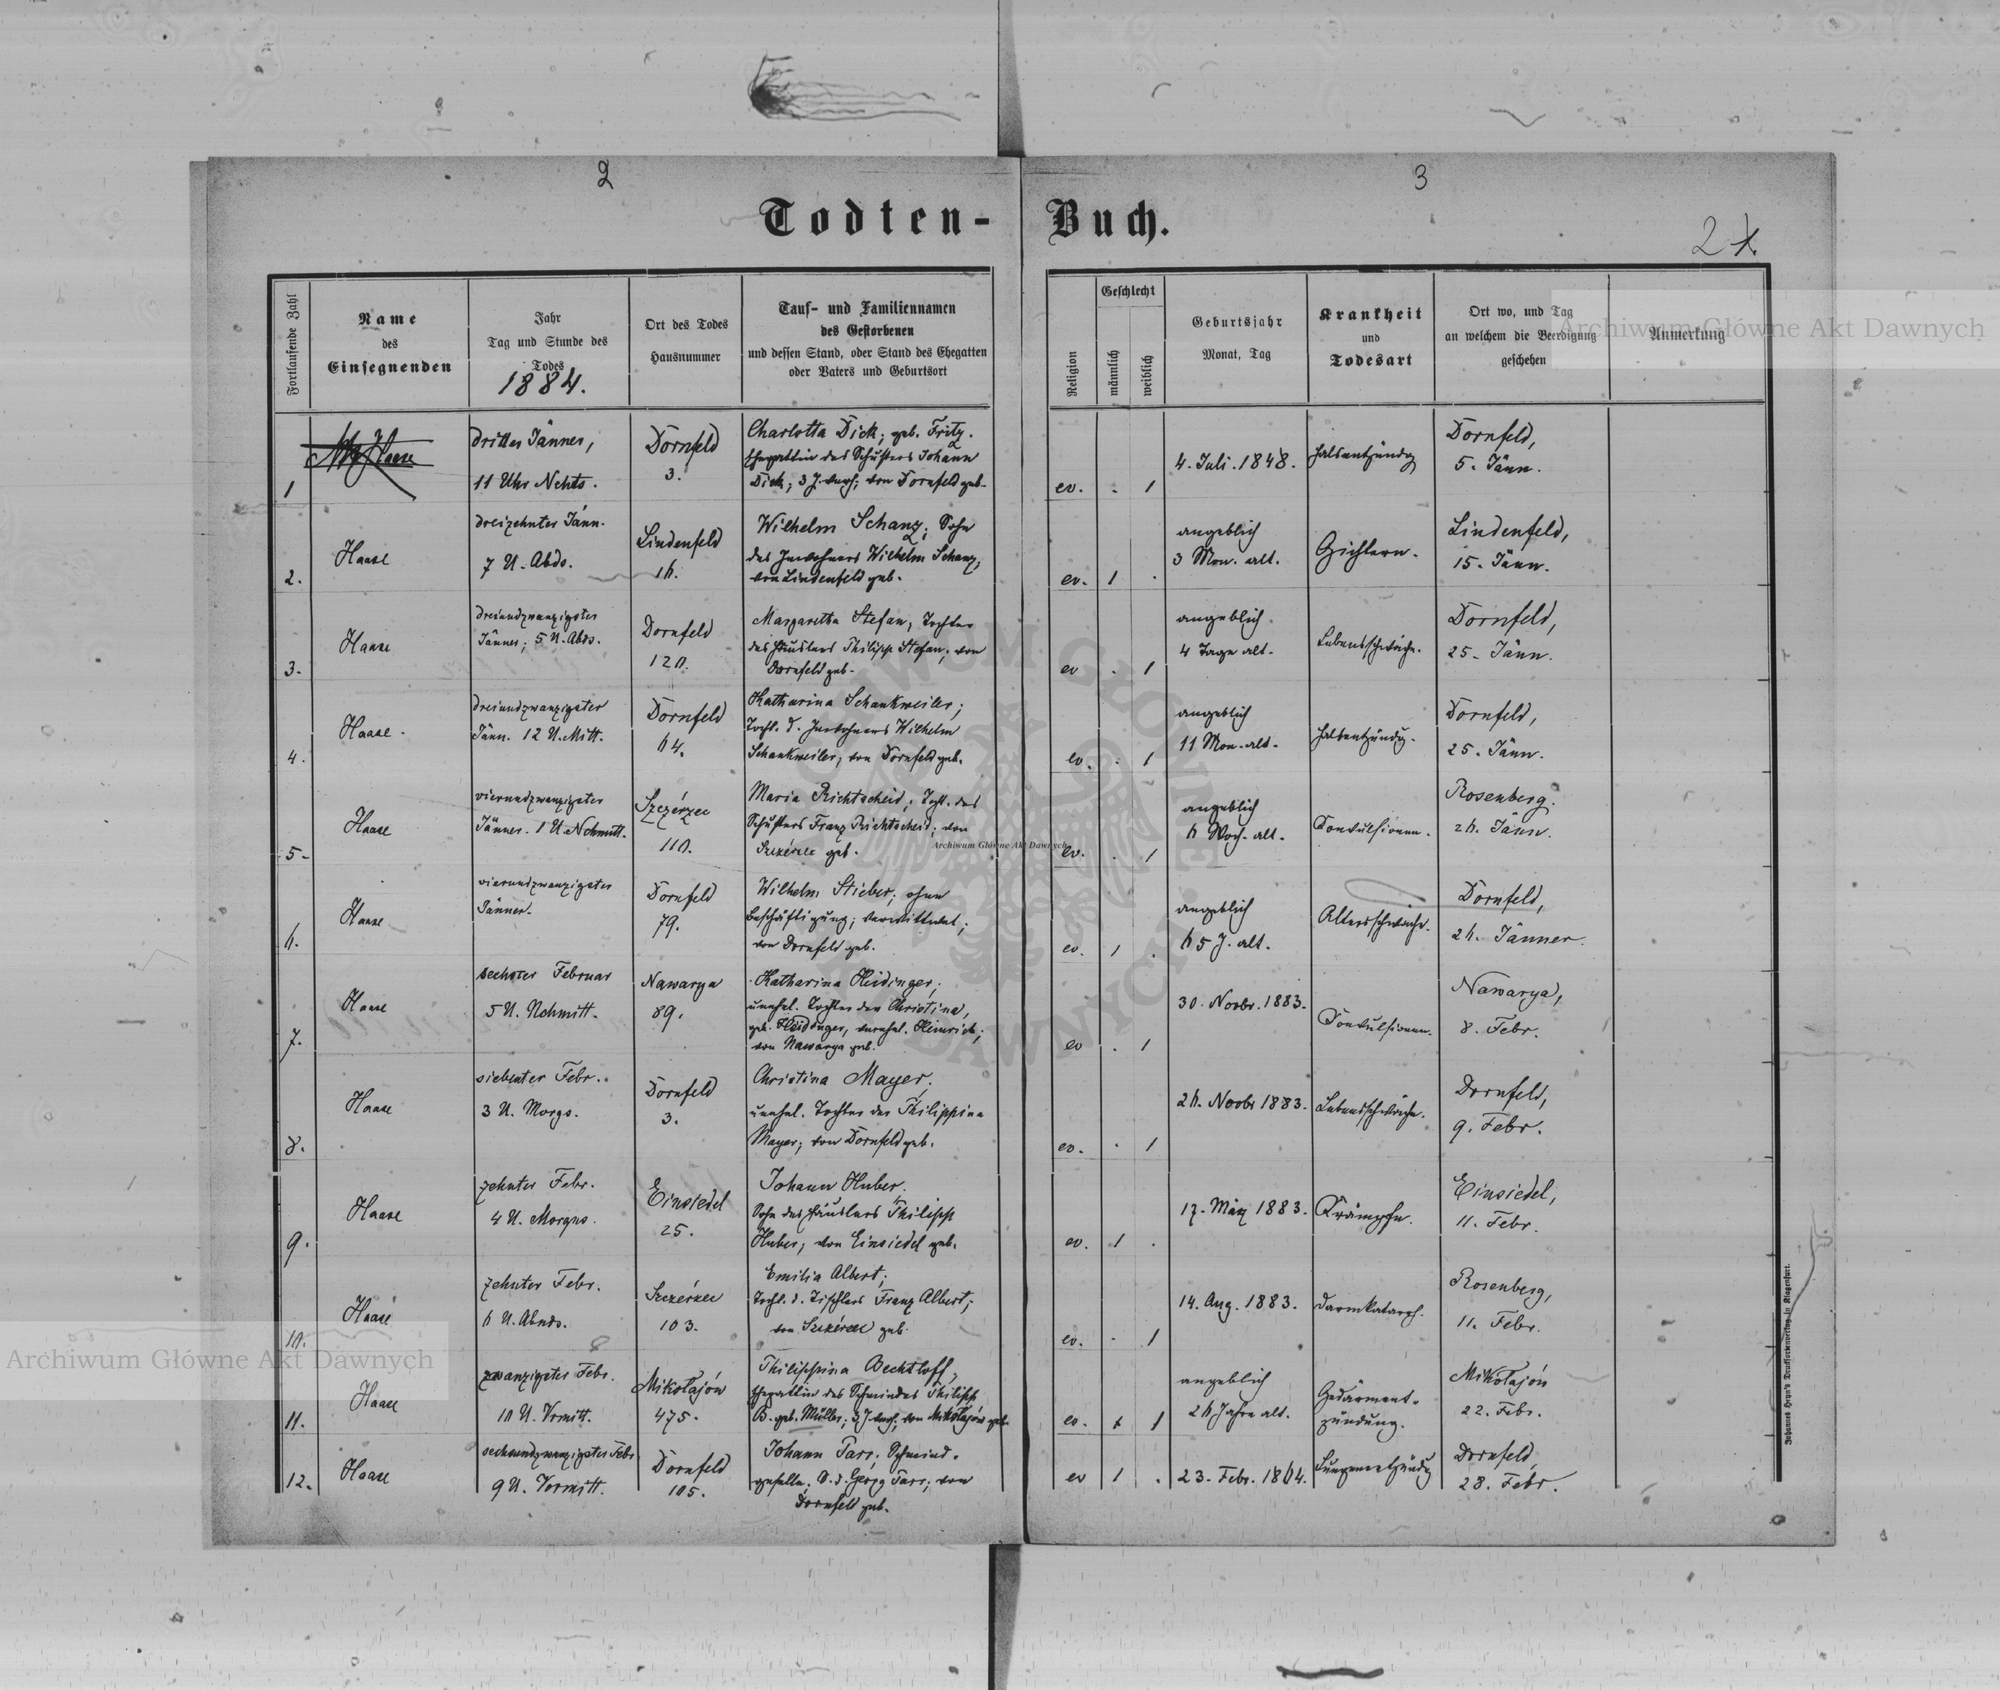 2
3
Todten-Buch.
2
Fortlaufende Zahl
Name
des
Einsegnenden
Jahr
Tag und Stunde des
Todes
1884.
Ort des Todes
Hausnummer
Tauf- und Familiennamen
des Gestorbenen
und dessen Stand, oder Stand des Ehegatten
oder Vaters und Geburtsort
Religion
Geschlecht
männlich
weiblich
Geburtsjahr
Monat, Tag
Krankheit
und
Todesart
Ort wo, und Tag
an welchem die Beerdigung
geschehen
Anmerkung
1
Haase
dritter Jänner,
11 Uhr Nchts.
Dornfeld
3.
Charlotta Dick; geb. Fritz.
Ehegattin des Schusters Johann
Dick; 3 J. verh; von Dornfeld geb.
ev. . 1
4. Juli. 1848.
Halsentzündg
Dornfeld,
5. Jänn.
2.
Haase
dreizehnter Jänn.
7 U. Abds.
Lindenfeld
16.
Wilhelm Schanz; Sohn
des Inwohners Wilhelm Schanz,
von Lindenfeld geb.
ev. 1 .
angeblich
3 Mon. alt.
Gichtern.
Lindenfeld,
15. Jänn.
3.
Haase
dreiundzwanzigster
Jänner; 5 U. Abds.
Dornfeld
120.
Margaretha Stefan, Tochter
des Häuslers Philipp Stefan; von
Dornfeld geb.
ev . 1
angeblich
4 Tage alt.
Lebensschwäche.
Dornfeld,
25. Jänn.
4.
Haase.
dreiundzwanzigster
Jänn. 12 U. Mitt.
Dornfeld
64.
Katharina Schankweiler;
Tocht. d. Inwohners Wilhelm
Schankweiler; von Dornfeld geb.
ev. . 1
angeblich
11 Mon. alt.
Halsentzündg.
Dornfeld,
25. Jänn.
5.
Haase
vierundzwanzigster
Jänner. 1 U. Nchmitt.
Szczérzec
110.
Maria Richtscheid; Tocht. des
Schusters Franz Richtscheid; von
Szczérzec geb.
ev. . 1
angeblich
6 Woch. alt.
Convulsionen.
Rosenberg.
26. Jänn.
6.
Haase
vierundzwanzigster
Jänner.
Dornfeld
79.
Wilhelm Stieber; ohne
Beschäftigung; verwittwet;
von Dornfeld geb.
ev. 1 .
angeblich
65 J. alt.
Altersschwäche.
Dornfeld,
26. Jänner.
7.
Haase
sechster Februar
5 U. Nchmitt.
Nawarya
89.
Katharina Heidinger;
unehel. Tochter der Christina,
geb. Heidinger, verehel. Heinrich;
von Nawarya geb.
ev . 1
30. Novbr. 1883.
Convulsionen.
Nawarya,
8. Febr.
8.
Haase
siebenter Febr.
3 U. Morgs.
Dornfeld
3.
Christina Mayer;
unehel. Tochter der Philippina
Mayer; von Dornfeld geb.
ev. . 1
26. Novbr 1883.
Lebensschwäche.
Dornfeld,
9. Febr.
9.
Haase
zehnter Febr.
4 U. Morgns.
Einsiedel
25.
Johann Huber.
Sohn des Häuslers Philipp
Huber; von Einsiedel geb.
ev. 1 .
17. März 1883.
Krämpfe.
Einsiedel,
11. Febr.
10.
Haase
zehnter Febr.
6 U. Abends.
Szczérzec
103.
Emilia Albert;
Tocht. d. Tischlers Franz Albert;
von Szczérzec geb.
ev. . 1
14. Aug. 1883.
Darmkatarrh.
Rosenberg,
11. Febr.
11.
Haase
zwanzigster Febr.
10 U. Vrmitt.
Mikołajów
475.
Philippina Bechtloff,
Ehegattin des Schmiedes Philipp
B. geb. Müller; 3 J. verh; von Mikołajów geb.
ev. 1
angeblich
26 Jahre alt.
Gedärment-
zündung.
Mikołajów
22. Febr.
12.
Haase
sechsundzwanzigster Febr
9 U. Vormitt.
Dornfeld
105.
Johann Parr; Schmied-
geselle; S. d. Georg Parr; von
Dornfeld geb.
ev 1 .
23. Febr. 1864.
Lungenentzündg
Dornfeld,
28. Febr.
Johannes Heyn's Drucksortenverlag in Klagenfurt.
Archiwum Główne Akt Dawnych
Archiwum Główne Akt Dawnych
Archiwum Główne Akt Dawnych
ARCHIWUM GŁÓWNE AKT DAWNYCH